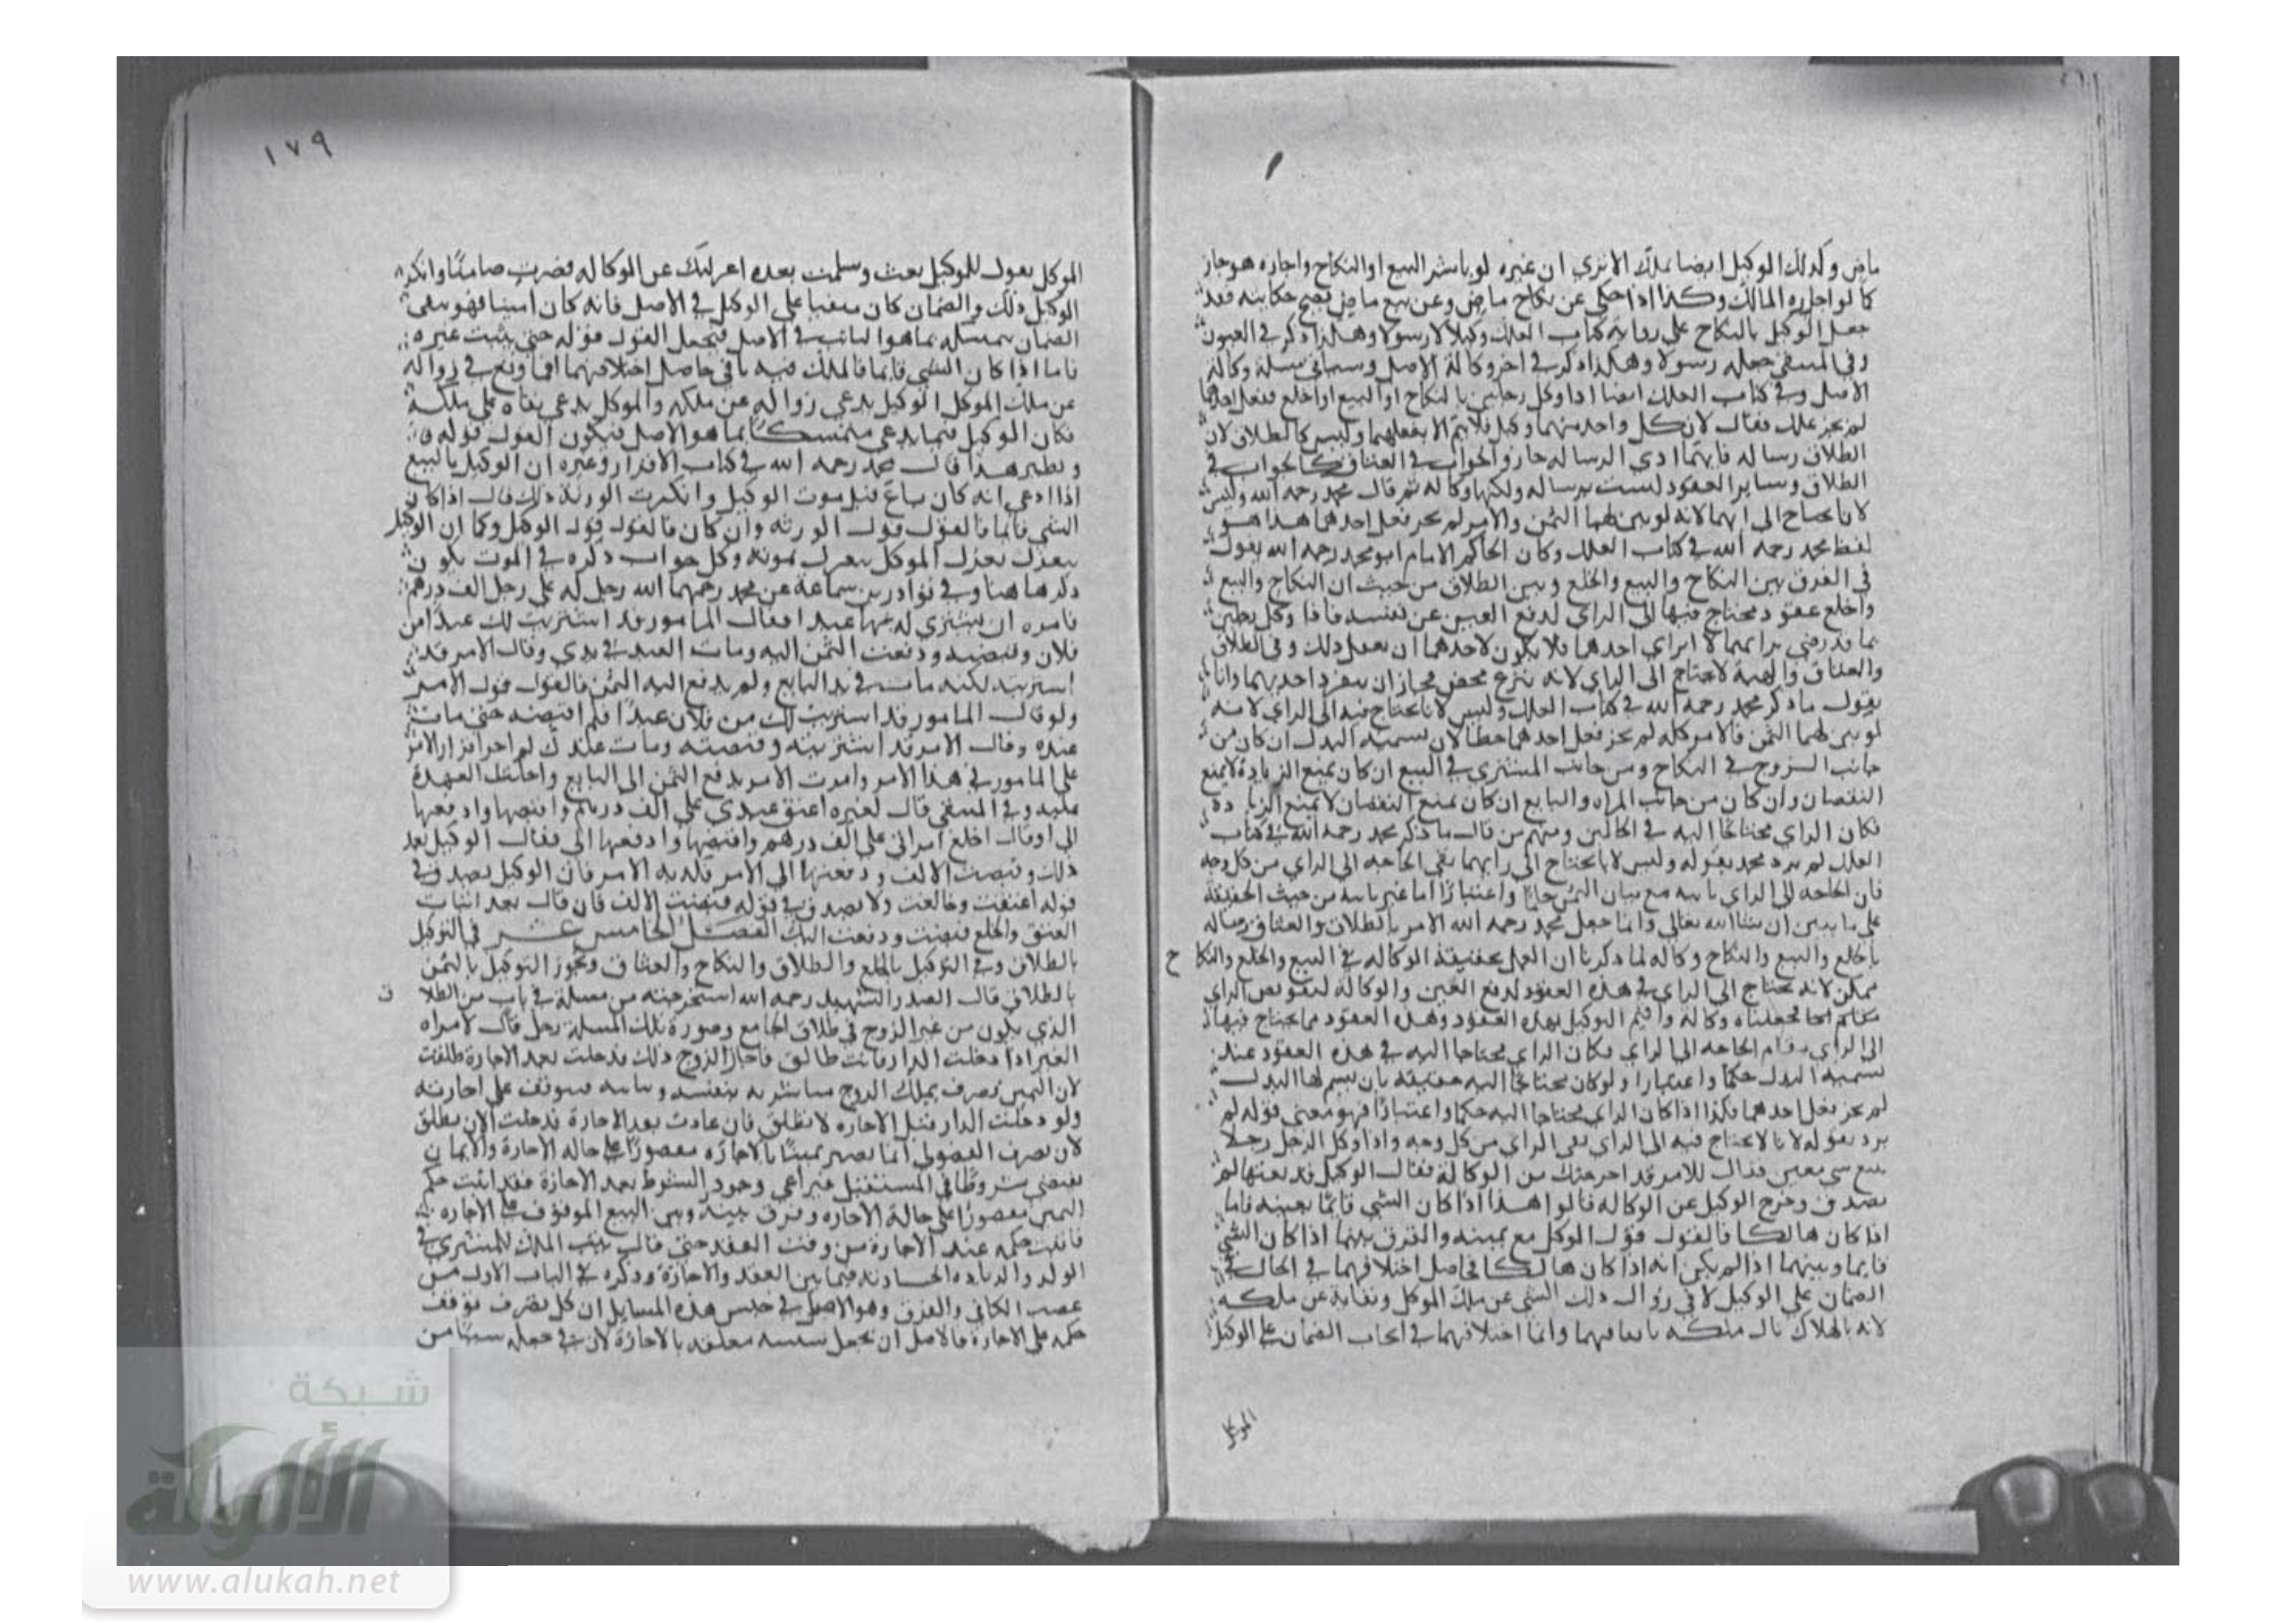 ماض وكذلك الوكيل ايضا يملك الا تري ان غيره لو باشر البيع او النكاح واجازه هو جاز
كما لو اجازه المالك وكذا اذا حكي عن نكاح ماض وعن بيع ماض يصح حكايته فقد
جعل الوكيل بالنكاح على رواية كتاب العلل وكيلا لا رسولا وهكذا ذكر في العيون
وفي المنتقى جعله رسولا وهكذا ذكر في اخر وكالة الاصل وسياتي مسئلة وكالة
الاصل وفي كتاب العلل ايضا اذا وكل رجلين بالنكاح او البيع او الخلع ففعل احدهما
لم يجز علل فقال لان كل واحد منهما وكيل فلا يتم الا بفعلهما وليس كالطلاق لان
الطلاق رساله فايهما ادي الرساله جاز والجواب في العتاق كالجواب في
الطلاق وساير العقود ليست برساله ولكنها وكاله ثم قال محمد رحمه الله وليس
لانا نحتاج الى رايهما لانه لو بين لهما الثمن والامر لم يجز فعل احدهما هذا هو
لفظ محمد رحمه الله في كتاب العلل وكان الحاكم الامام ابو محمد رحمه الله يقول
في الفرق بين النكاح والبيع والخلع وبين الطلاق من حيث ان النكاح والبيع
والخلع عقود يحتاج فيها الى الراي لدفع الغبن عن نفسه فاذا وكل رجلين
فما قد رضي برايهما لا براي احدهما فلا يكون لاحدهما ان يفعل ذلك وفي الطلاق
والعتاق والهبة لا يحتاج الى الراي لانه تبرع محض فجاز ان ينفرد احدهما وانا
نقول ما ذكر محمد رحمه الله في كتاب العلل وليس لانا نحتاج فيه الى الراي لانه
لو بين لهما الثمن فالامر كله لم يجز فعل احدهما خطا لان تسمية البدل ان كان من
جانب الزوج في النكاح ومن جانب المشتري في البيع ان كان يمنع الزيادة لا يمنع
النقصان وان كان من جانب المراه والبايع ان كان يمنع النقصان لا يمنع الزيادة
فكان الراي محتاجا اليه في الحالين ومنهم من قال ما ذكر محمد رحمه الله في كتاب
العلل لم يرد محمد بقوله وليس لانا نحتاج الى رايهما نفي الحاجه الى الراي من كل وجه
فان الحاجه الى الراي ثابته مع بيان الثمن حكما واعتبارا اما غير ثابته من حيث الحقيقة
على ما يبين ان شاالله تعالي وانما جعل محمد رحمه الله الامر بالطلاق والعتاق رساله
بالخلع والبيع والنكاح وكاله لما ذكرنا ان العمل بحقيقة الوكاله في البيع والخلع والنكا ح
ممكن لانه يحتاج الى الراي في هذه العقود لدفع الغبن والوكالة لتفويض الراي
فجعلناه وكالة واقيم التوكيل بهذه العقود وهذه العقود مما يحتاج فيها
الى الراي مقام الحاجه الى الراي فكان الراي محتاجا اليه في هذه العقود عند
تسمية البدل حكما واعتبارا ولو كان محتاجا اليه حقيقه بان لم يسم لها البدل
لم يجز فعل احدهما فكذا اذا كان الراي محتاجا اليه حكما واعتبارا فهو معنى قوله لم
يرد بقوله لانا لا نحتاج فيه الى الراي نفى الراي من كل وجه واذا وكل الرجل رجلا
ببيع شي معين فقال الامر قد اخرجتك من الوكالة فقال الوكيل قد بعتها لم
يصدق وخرج الوكيل عن الوكاله قالوا هذا اذا كان الشي قايما بعينه فاما
اذا كان هالكا فالقول قول الوكيل مع يمينه والفرق بينهما اذا كان الشي
قايما وبينهما اذا لم يكن انه اذا كان هالكا فحاصل اختلافهما في الحال في
الضمان على الوكيل لا في زوال ذلك الشي عن ملك الموكل وبقايه على ملكه
لانه بالهلاك زال ملكه باتفاقهما وانما اختلافهما في ايجاب الضمان على الوكيل
الموكل
١٧٩
الموكل يقول للوكيل بعت وسلمت بعده اعزلتك عن الوكاله فصرت ضامنا وانكر
الوكيل ذلك والضمان كان منفيا على الوكيل في الاصل فانه كان امينا فهو ينفي
الضمان متمسك بما هو الثابت في الاصل فيجعل القول قوله حتى يثبت غيره
فاما اذا كان الشي قايما فالملك فيه باقي حاصل اختلافهما انما وقع في زواله
عن ملك الموكل الوكيل يدعي زواله عن ملكه والموكل يدعي بقاه على ملكه
فكان الوكيل فيما يدعي متمسكا بما هو الاصل فيكون القول قوله
ونظير هذا قال محمد رحمه الله في كتاب الاقرار وغيره ان الوكيل بالبيع
اذا ادعي انه كان باع قبل موت الوكيل وانكرت الورثة ذلك قال اذا كان
الشي قايما فالقول قول الورثه وان كان فالقول قول الوكيل وكما ان الوكيل
ينعزل بعزل الموكل ينعزل بموته وكل جواب ذكره في الموت يكون
ذكرها هنا وفي نوادر بن سماعة عن محمد رحمهما الله رجل له على رجل الف درهم
فامره ان يشتري له بها عبدا فقال المامور قد اشتريت لك عبدا من
فلان وقبضته ودفعت الثمن اليه ومات العبد في يدي وقال الامر قد
اشتريته لكنه مات في يد البايع ولم يدفع اليه الثمن فالقول قول الامر
ولو قال المامور قد اشتريت لك من فلان عبدا فلم اقبضه حتى مات
عنده وقال الامر قد اشتريته وقبضته ومات عندك لم اجز اقرار الامر
على المامور في هذا الامر وامرت الامر بدفع الثمن الى البايع واجعلت العهدة
عليه وفي المنتقى قال لغيره اعتق عبدي على الف درهم واقبضها وادفعها
الي او قال اخلع امراتي على الف درهم واقبضها وادفعها الي فقال الوكيل بعد
ذلك وقبضت الالف ودفعتها الى الامر فكذبه الامر فان الوكيل يصدق في
قوله اعتقت وخالعت ولا يصدق في قوله قبضت الالف فان قال بعد اثبات
العتق والخلع قبضت ودفعت اليك الفصل الخامس عشر في التوكيل
بالطلاق وفي التوكيل بالخلع والطلاق والنكاح والعتاق ويجوز التوكيل باليمين
بالطلاق قال الصدر الشهيد رحمه الله استخرجته من مسئلة في باب من الطلا ق
الذي يكون من غير الزوج في طلاق الجامع وصورة تلك المسئلة رجل قال لامراه
الغير اذا دخلت الدار فانت طالق فاجاز الزوج ذلك فدخلت بعد الاجازة طلقت
لان اليمين تصرف يملك الزوج مباشرته بنفسه ونايبه فيتوقف على اجازته
ولو دخلت الدار قبل الاجازه لا تطلق فان عادت بعد الاجازة فدخلت الان تطلق
لان تصرف الفضولي انما يصير يمينا بالاجازه مقصورا على حاله الاجازة والايمان
يقتضي شروطا في المستقبل فيراعي وجود الشرط بعد الاجازة فقد اثبت حكم
اليمين مقصورا على حالة الاجازه وفرق بينه وبين البيع الموقوف على الاجازه
فاثبت حكمه عند الاجازة من وقت العقد حتى قال يثبت الملك للمشتري في
الولد والزياده الحادثه فيما بين العقد والاجازة وذكره في الباب الاول من
غصب الكافي والفرق وهو الاصل في جنس هذه المسايل ان كل تصرف توقف
حكمه على الاجازة فالاصل ان يجعل معلقه بالاجازة لان في جعله سببا من
شبكة
الألوكة
www.alukah.net